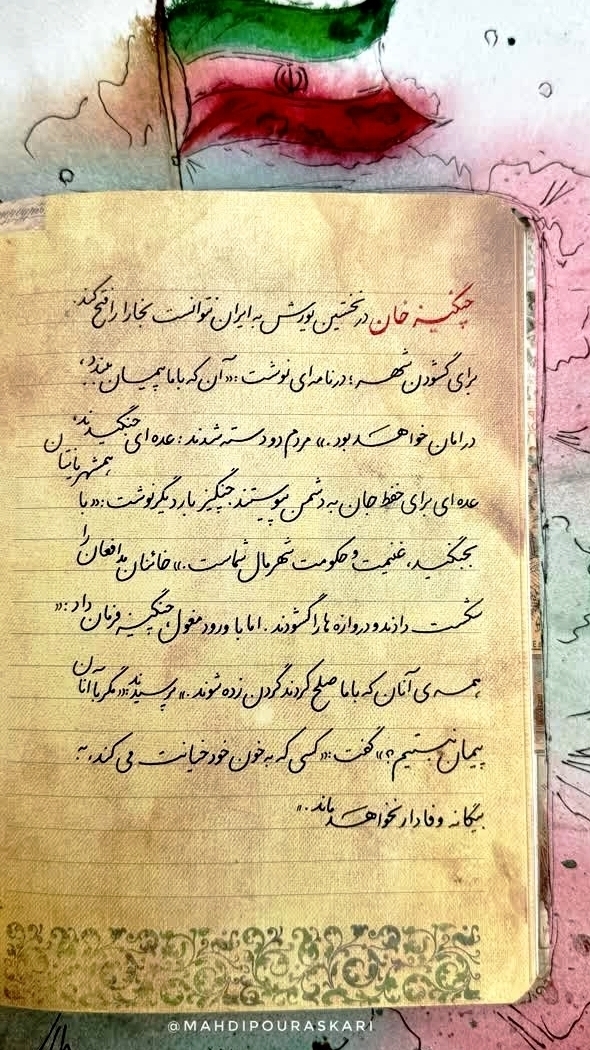 چنگیز خان در نخستین یورش به ایران نتوانست بخارا را فتح کند.
برای گشودن شهر؛ در نامه‌ای نوشت: «آن که با ما پیمان بندد،
در امان خواهد بود.» مردم دو دسته شدند: عده‌ای جنگیدند،
عده‌ای برای حفظ جان به دشمن پیوستند. چنگیز بار دیگر نوشت: «با همشهریانتان
بجنگید، غنیمت و حکومت شهر مال شماست.» خائنان مدافعان را
شکست دادند و دروازه ها را گشودند. اما با ورود مغول، چنگیز فرمان داد: «
همه‌ی آنان که با ما صلح کردند گردن زده شوند.» پرسیدند: «مگر با آنان
پیمان نبستیم؟» گفت: «کسی که به خون خود خیانت می کند، به
بیگانه وفادار نخواهد ماند.»
@MAHDIPOURASKARI